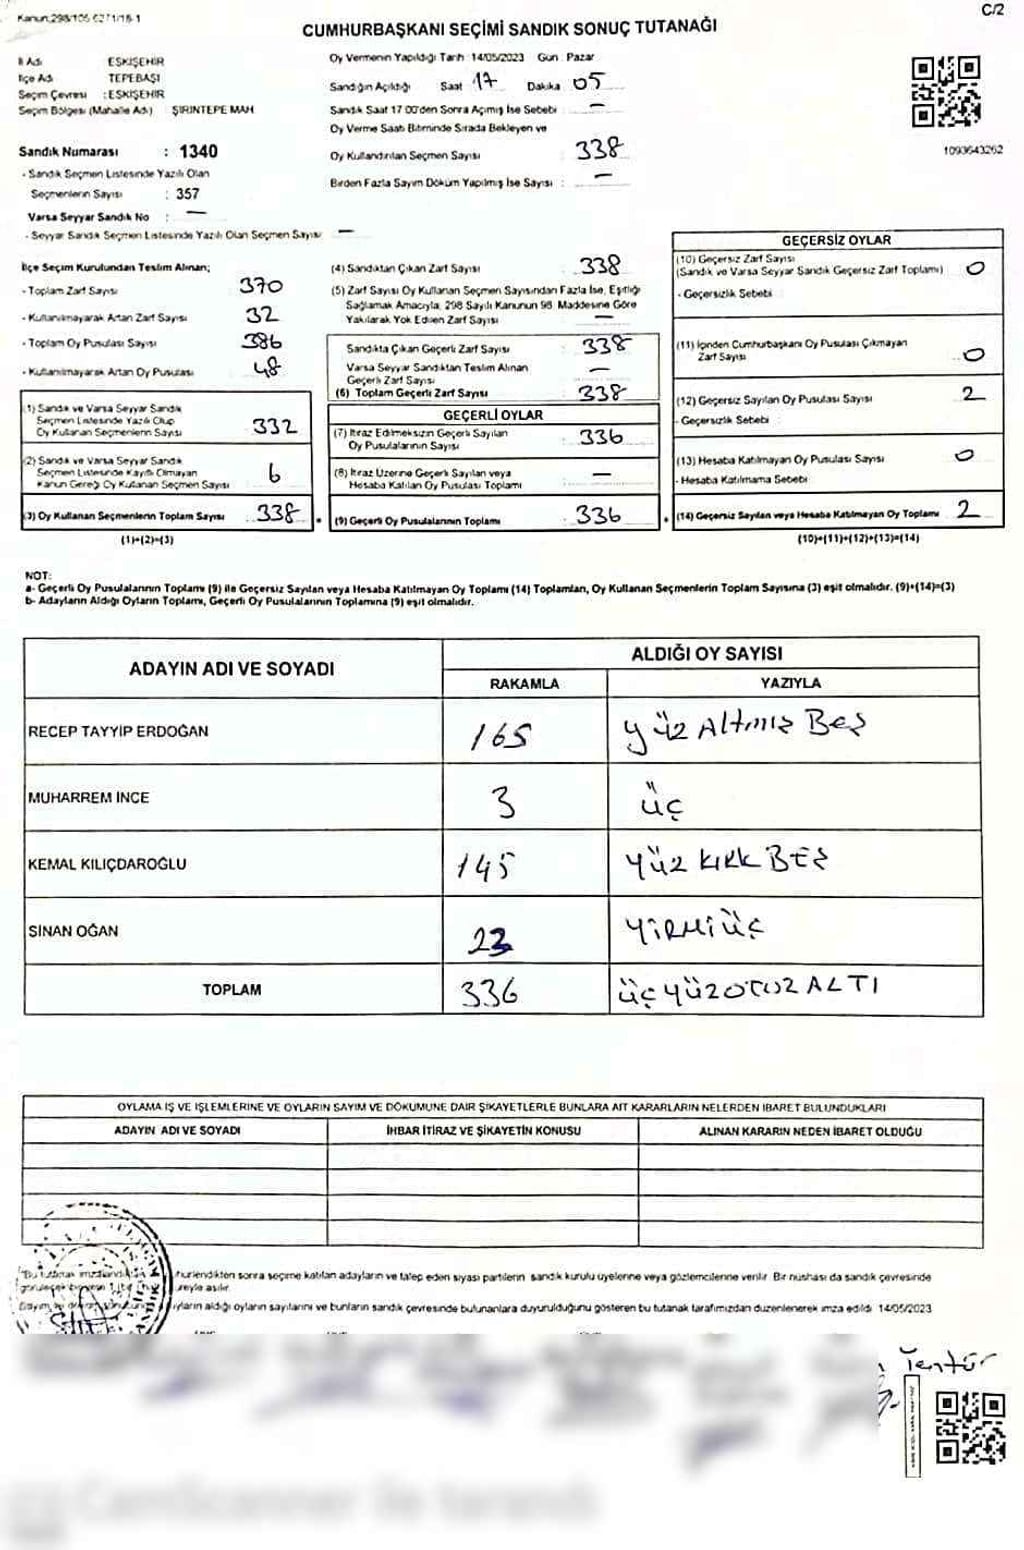 Kanun;298/105 6271/18-1
C/2
CUMHURBAŞKANI SEÇİMİ SANDIK SONUÇ TUTANAĞI
İl Adı ESKİŞEHİR
İlçe Adı TEPEBAŞI
Seçim Çevresi : ESKİŞEHİR
Seçim Bölgesi (Mahalle Adı) ŞİRİNTEPE MAH
Sandık Numarası : 1340
- Sandık Seçmen Listesinde Yazılı Olan
Seçmenlerin Sayısı : 357
Varsa Seyyar Sandık No : —
- Seyyar Sandık Seçmen Listesinde Yazılı Olan Seçmen Sayısı : —
Oy Vermenin Yapıldığı Tarih 14/05/2023 Gün Pazar
Sandığın Açıldığı Saat 17 Dakika 05
Sandık Saat 17 00'den Sonra Açımış İse Sebebi : —
Oy Verme Saati Bitiminde Sırada Bekleyen ve
Oy Kullandırılan Seçmen Sayısı : 338
Birden Fazla Sayım Döküm Yapılmış İse Sayısı : —
1093643262
İlçe Seçim Kurulundan Teslim Alınan;
- Toplam Zarf Sayısı : 370
- Kullanılmayarak Artan Zarf Sayısı : 32
- Toplam Oy Pusulası Sayısı : 386
- Kullanılmayarak Artan Oy Pusulası : 48
(1) Sandık ve Varsa Seyyar Sandık
Seçmen Listesinde Yazılı Olup
Oy Kullanan Seçmenlerin Sayısı : 332
(2) Sandık ve Varsa Seyyar Sandık
Seçmen Listesinde Kayıtlı Olmayan
Kanun Gereği Oy Kullanan Seçmen Sayısı : 6
(3) Oy Kullanan Seçmenlerin Toplam Sayısı : 338
(1)+(2)=(3)
(4) Sandıktan Çıkan Zarf Sayısı : 338
(5) Zarf Sayısı Oy Kullanan Seçmen Sayısından Fazla İse, Eşitliği
Sağlamak Amacıyla, 298 Sayılı Kanunun 98. Maddesine Göre
Yakılarak Yok Edilen Zarf Sayısı : —
Sandıkta Çıkan Geçerli Zarf Sayısı : 338
Varsa Seyyar Sandıktan Teslim Alınan
Geçerli Zarf Sayısı : —
(6) Toplam Geçerli Zarf Sayısı : 338
GEÇERLİ OYLAR
(7) İtiraz Edilmeksizin Geçerli Sayılan
Oy Pusulalarının Sayısı : 336
(8) İtiraz Üzerine Geçerli Sayılan veya
Hesaba Katılan Oy Pusulası Toplamı : —
(9) Geçerli Oy Pusulalarının Toplamı : 336
GEÇERSİZ OYLAR
(10) Geçersiz Zarf Sayısı
(Sandık ve Varsa Seyyar Sandık Geçersiz Zarf Toplamı) : 0
- Geçersizlik Sebebi :
(11) İçinden Cumhurbaşkanı Oy Pusulası Çıkmayan
Zarf Sayısı : 0
(12) Geçersiz Sayılan Oy Pusulası Sayısı : 2
- Geçersizlik Sebebi :
(13) Hesaba Katılmayan Oy Pusulası Sayısı : 0
- Hesaba Katılmama Sebebi :
(14) Geçersiz Sayılan veya Hesaba Katılmayan Oy Toplamı : 2
(10)+(11)+(12)+(13)=(14)
NOT:
a- Geçerli Oy Pusulalarının Toplamı (9) ile Geçersiz Sayılan veya Hesaba Katılmayan Oy Toplamı (14) Toplamları, Oy Kullanan Seçmenlerin Toplam Sayısına (3) eşit olmalıdır. (9)+(14)=(3)
b- Adayların Aldığı Oyların Toplamı, Geçerli Oy Pusulalarının Toplamına (9) eşit olmalıdır.
ADAYIN ADI VE SOYADI ALDIĞI OY SAYISI
RAKAMLA YAZIYLA
RECEP TAYYİP ERDOĞAN 165 YÜZ ALTMIŞ BEŞ
MUHARREM İNCE 3 ÜÇ
KEMAL KILIÇDAROĞLU 145 YÜZ KIRK BEŞ
SİNAN OĞAN 23 YİRMİ ÜÇ
TOPLAM 336 ÜÇ YÜZ OTUZ ALTI
OYLAMA İŞ VE İŞLEMLERİNE VE OYLARIN SAYIM VE DÖKÜMÜNE DAİR ŞİKAYETLERLE BUNLARA AİT KARARLARIN NELERDEN İBARET BULUNDUKLARI
ADAYIN ADI VE SOYADI İHBAR İTİRAZ VE ŞİKAYETİN KONUSU ALINAN KARARIN NEDEN İBARET OLDUĞU
"Bu tutanak sonra seçime katılan adayların ve talep eden siyasi partilerin sandık kurulu üyelerine veya gözlemcilerine verilir. Bir nüshası da sandık çevresinde
asılır.
aldığı oyların sayılarını ve bunların sandık çevresinde bulunanlara duyurulduğunu gösteren bu tutanak tarafımızdan düzenlenerek imza edildi 14/05/2023